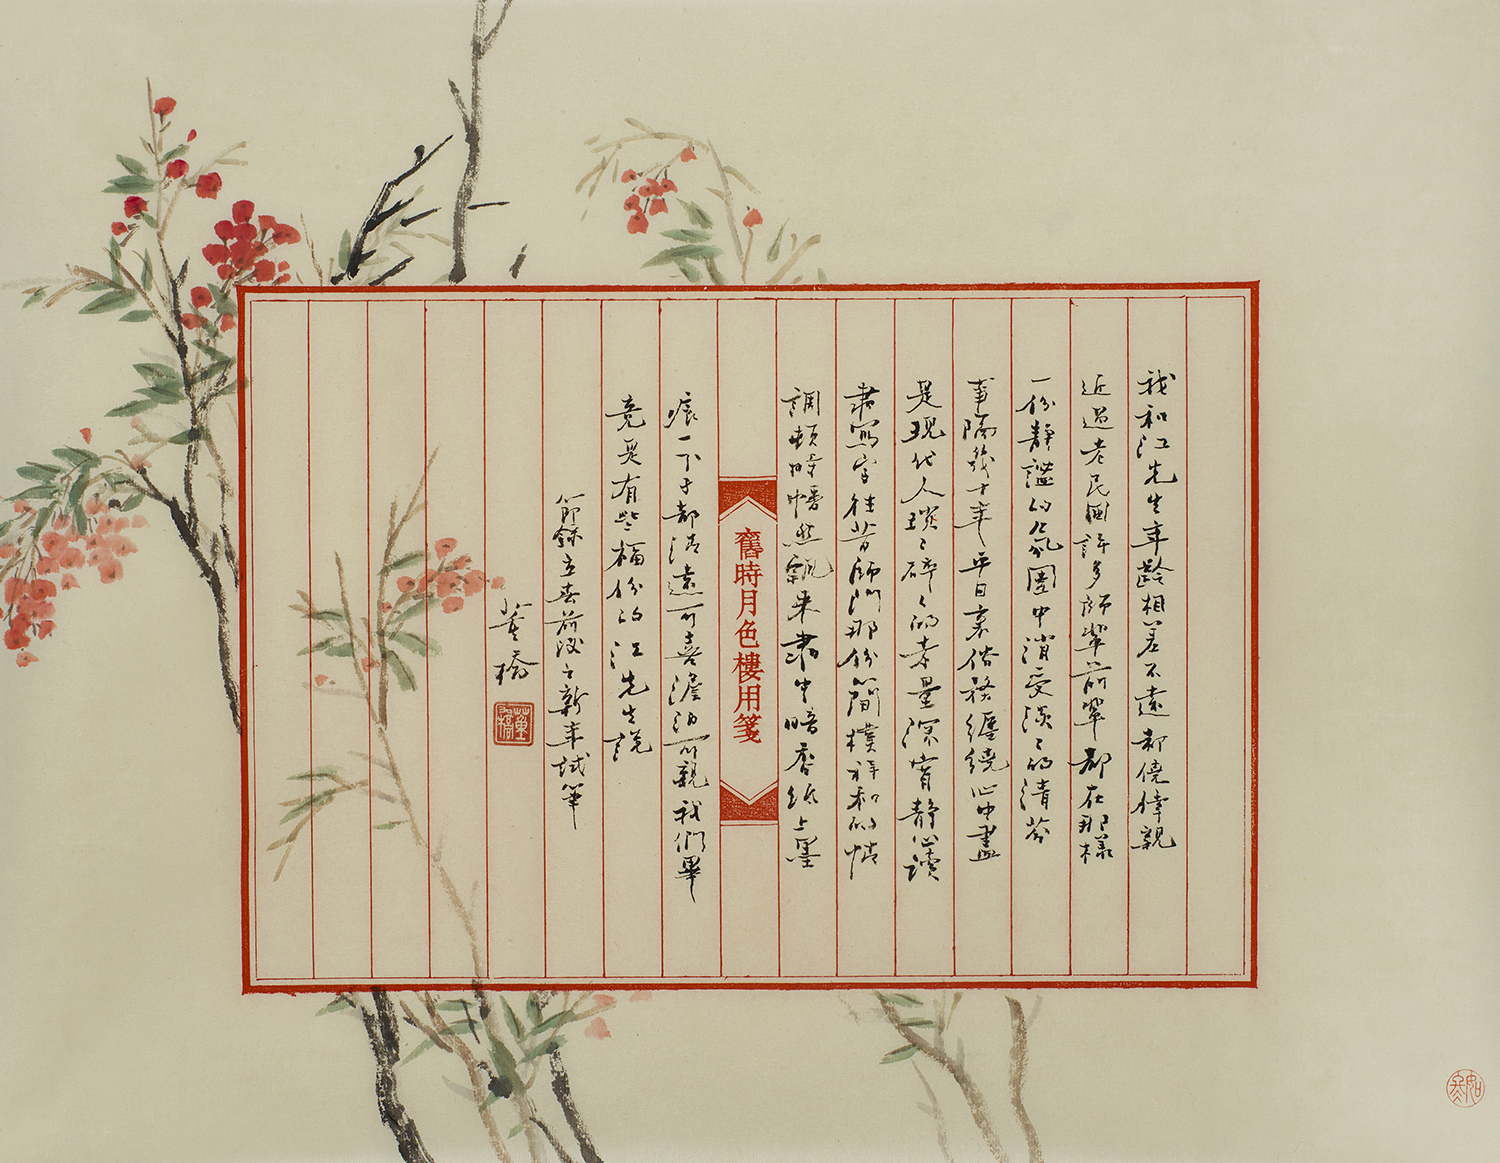 我和江先生年齡相差不遠都僥倖親
近過老民國許多師輩前輩都在那樣
一份靜謐的氛圍中消受淡淡的清芬
事隔幾十年平日裏俗務纏繞心中盡
是現代人瑣瑣碎碎的考量深宵靜心讀
書寫字往昔師門那份簡樸祥和的情
調頓時幡然飄來書中暗香紙上墨
舊時月色樓用箋
痕一下子都清遠可喜澹泊可親我們畢
竟是有些福份的江先生說
節錄立春前後之新年試筆
董橋
董橋